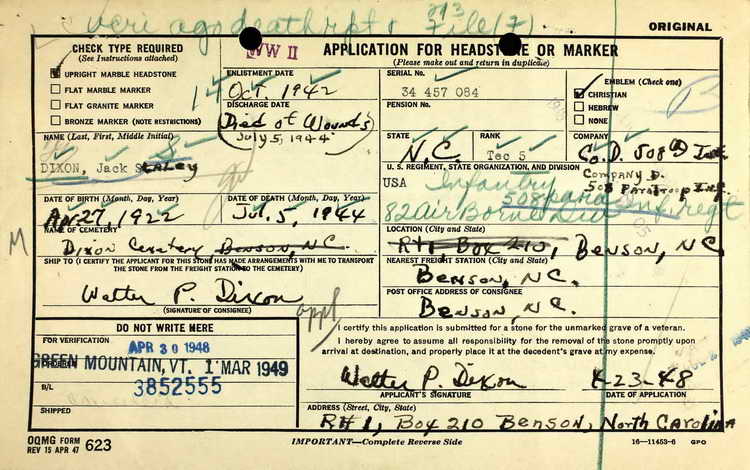 veri ago death rpt
213
File (7)
ORIGINAL
WW II
CHECK TYPE REQUIRED
(See Instructions attached)
UPRIGHT MARBLE HEADSTONE
FLAT MARBLE MARKER
FLAT GRANITE MARKER
BRONZE MARKER (NOTE RESTRICTIONS)
APPLICATION FOR HEADSTONE OR MARKER
(Please make out and return in duplicate)
ENLISTMENT DATE
Oct. 1942
SERIAL No.
34 457 084
EMBLEM (Check one)
CHRISTIAN
HEBREW
NONE
DISCHARGE DATE
(Died of Wounds)
July 5, 1944
PENSION No.
NAME (Last, First, Middle Initial)
DIXON, Jack Staley
STATE
N.C.
RANK
Tec 5
COMPANY
Co. D. 508
U. S. REGIMENT, STATE ORGANIZATION, AND DIVISION
USA
Company D.
508 Paratroop Inf.
Infantry
508 para Inf regt
82 Air Borne Div
DATE OF BIRTH (Month, Day, Year)
Apr 27, 1922
DATE OF DEATH (Month, Day, Year)
Jul. 5, 1944
M
NAME OF CEMETERY
Dixon Cemetery Benson, N.C.
LOCATION (City and State)
Rt 1 Box 210, Benson, NC
SHIP TO (I CERTIFY THE APPLICANT FOR THIS STONE HAS MADE ARRANGEMENTS WITH ME TO TRANSPORT
THE STONE FROM THE FREIGHT STATION TO THE CEMETERY)
NEAREST FREIGHT STATION (City and State)
Benson, N.C.
Walter P. Dixon
(SIGNATURE OF CONSIGNEE)
appl
POST OFFICE ADDRESS OF CONSIGNEE
Benson, N.C.
DO NOT WRITE HERE
FOR VERIFICATION
APR 30 1948
ORDERED
GREEN MOUNTAIN, VT. 1 MAR 1949
B/L
3852555
SHIPPED
I certify this application is submitted for a stone for the unmarked grave of a veteran.
I hereby agree to assume all responsibility for the removal of the stone promptly upon
arrival at destination, and properly place it at the decedent's grave at my expense.
Walter P. Dixon
4-23-48
APPLICANT'S SIGNATURE
DATE OF APPLICATION
ADDRESS (Street, City, State)
Rt 1, Box 210 Benson, North Carolina
OQMG FORM
REV 15 APR 47
623
IMPORTANT—Complete Reverse Side
16—11453-6 GPO